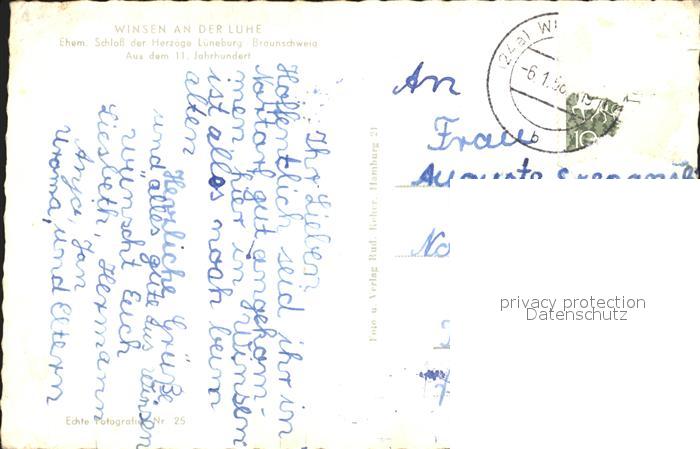 WINSEN AN DER LUHE
Ehem. Schloß der Herzoge Lüneburg Braunschweig
Aus dem 11. Jahrhundert
Ihr Lieben!
Hoffentlich seid ihr in
Nortorf gut angekom-
men, hier in Winsen
ist alles noch beim
alten
Herzliche Grüße
und alles gute aus Winsen
wünscht Euch
Liesbeth, Hermann
Anja, Jan
Uroma, und Eltern
Echte Fotografie Nr. 25
Foto u. Verlag Rud. Reher, Hamburg 21
(24a) WI
-6.1.56
b
10
An
Frau
Auguste
No
privacy protection
Datenschutz